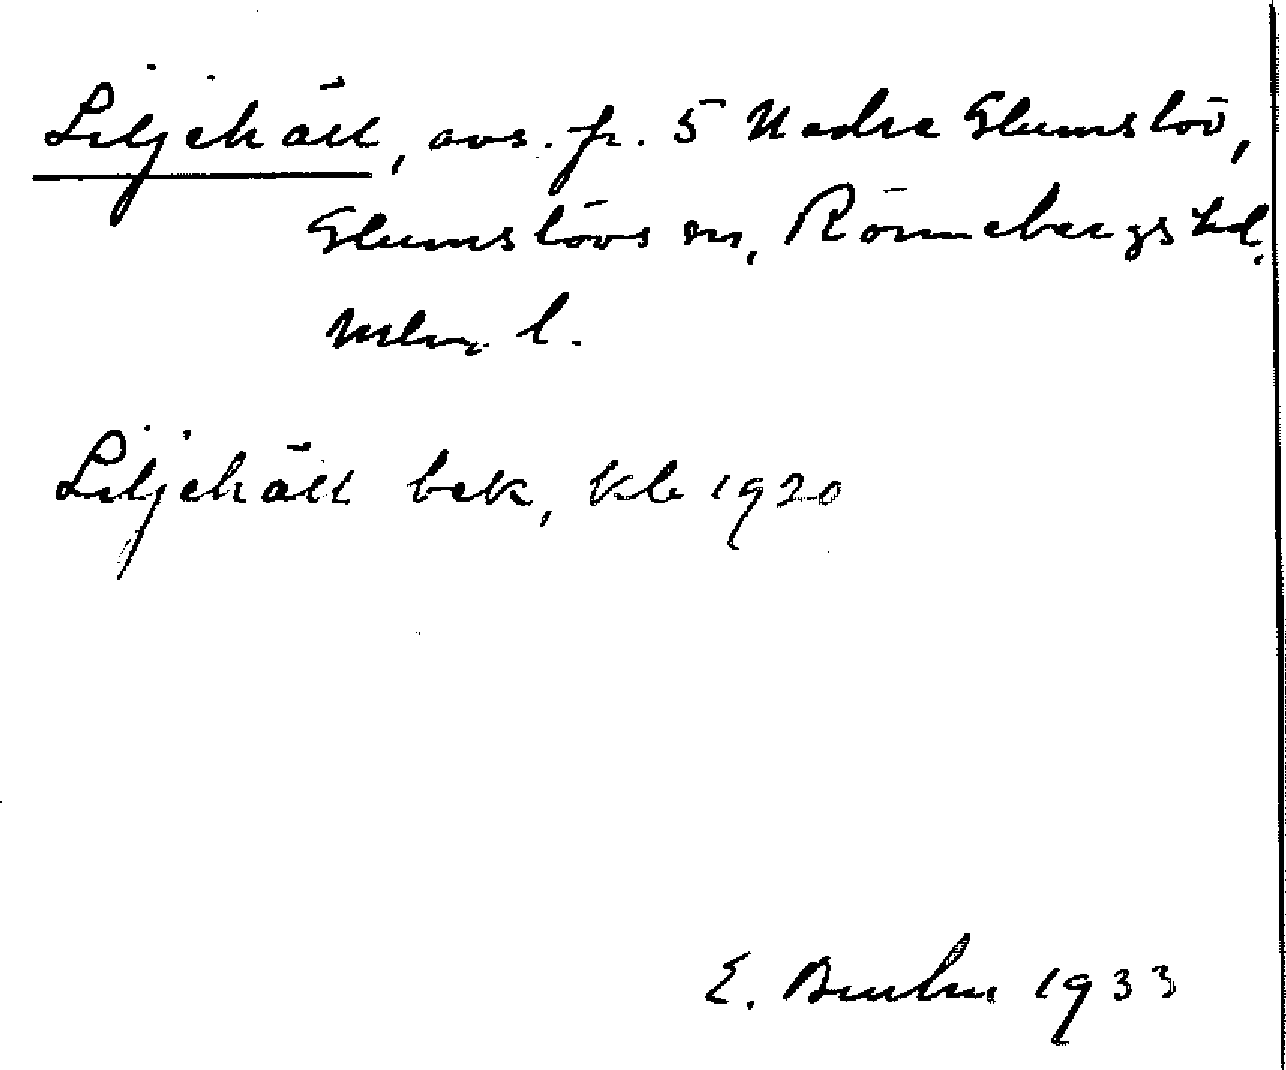 Liljehäll, avs. fr. 5 Nedre Glumslöv,
Glumslövs sn, Rönnebergs hd,
Mlm. l.
Liljehäll bek, kb 1920
E. 1933